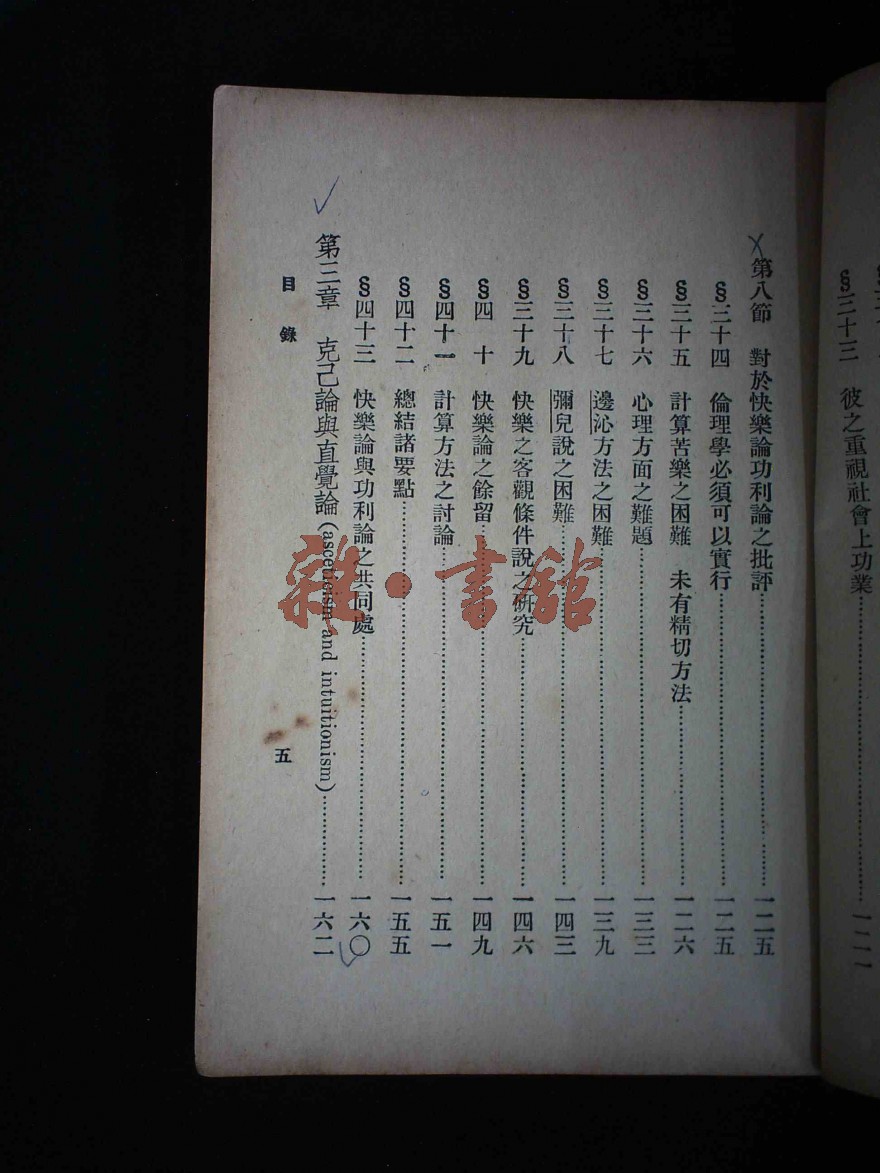 §三十三　彼之重視社會上功業……一二一
第八節　對於快樂論功利論之批評……一二五
§三十四　倫理學必須可以實行……一二五
§三十五　計算苦樂之困難　未有精切方法……一二六
§三十六　心理方面之難題……一三三
§三十七　邊沁方法之困難……一三九
§三十八　彌兒說之困難……一四三
§三十九　快樂之客觀條件說之研究……一四六
§四十　快樂論之餘留……一四九
§四十一　計算方法之討論……一五一
§四十二　總結諸要點……一五五
§四十三　快樂論與功利論之共同處……一六〇
第三章　克己論與直覺論(asceticism and intuitionism)……一六二
目錄
五
雜·書館